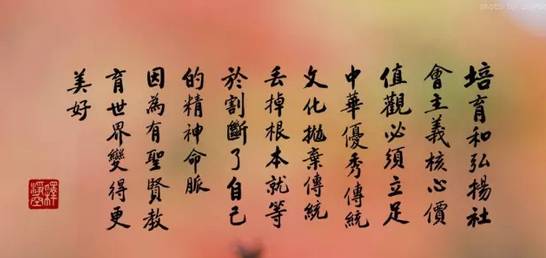 培育和弘揚社
會主義核心價
值觀必須立足
中華優秀傳統
文化拋棄傳統
丟掉根本就等
於割斷了自己
的精神命脈
因為有聖賢教
育世界變得更
美好